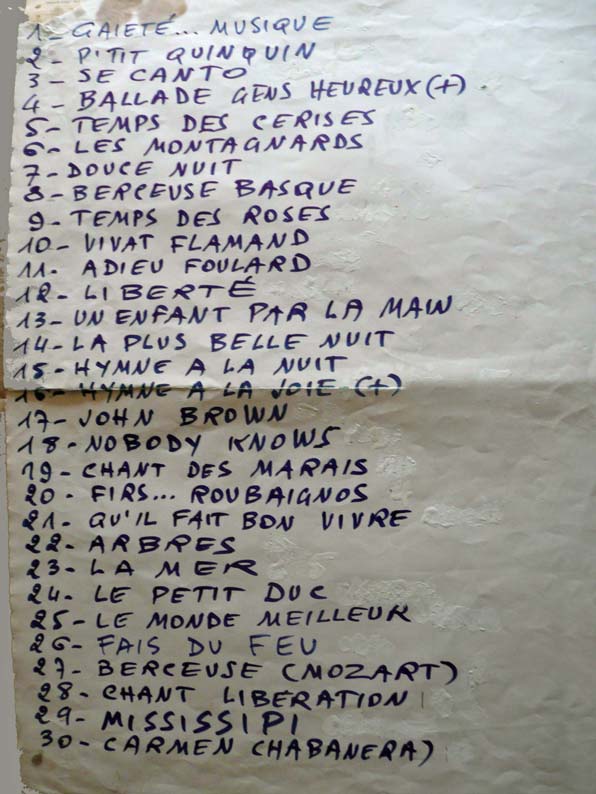 1- GAIETÉ... MUSIQUE
2- P'TIT QUINQUIN
3- SE CANTO
4- BALLADE GENS HEUREUX (+)
5- TEMPS DES CERISES
6- LES MONTAGNARDS
7- DOUCE NUIT
8- BERCEUSE BASQUE
9- TEMPS DES ROSES
10- VIVAT FLAMAND
11- ADIEU FOULARD
12- LIBERTÉ
13- UN ENFANT PAR LA MAIN
14- LA PLUS BELLE NUIT
15- HYMNE A LA NUIT
16- HYMNE A LA JOIE (+)
17- JOHN BROWN
18- NOBODY KNOWS
19- CHANT DES MARAIS
20- FIRS... ROUBAIGNOS
21- QU'IL FAIT BON VIVRE
22- ARBRES
23- LA MER
24- LE PETIT DUC
25- LE MONDE MEILLEUR
26- FAIS DU FEU
27- BERCEUSE (MOZART)
28- CHANT LIBERATION
29- MISSISSIPI
30- CARMEN (HABANERA)